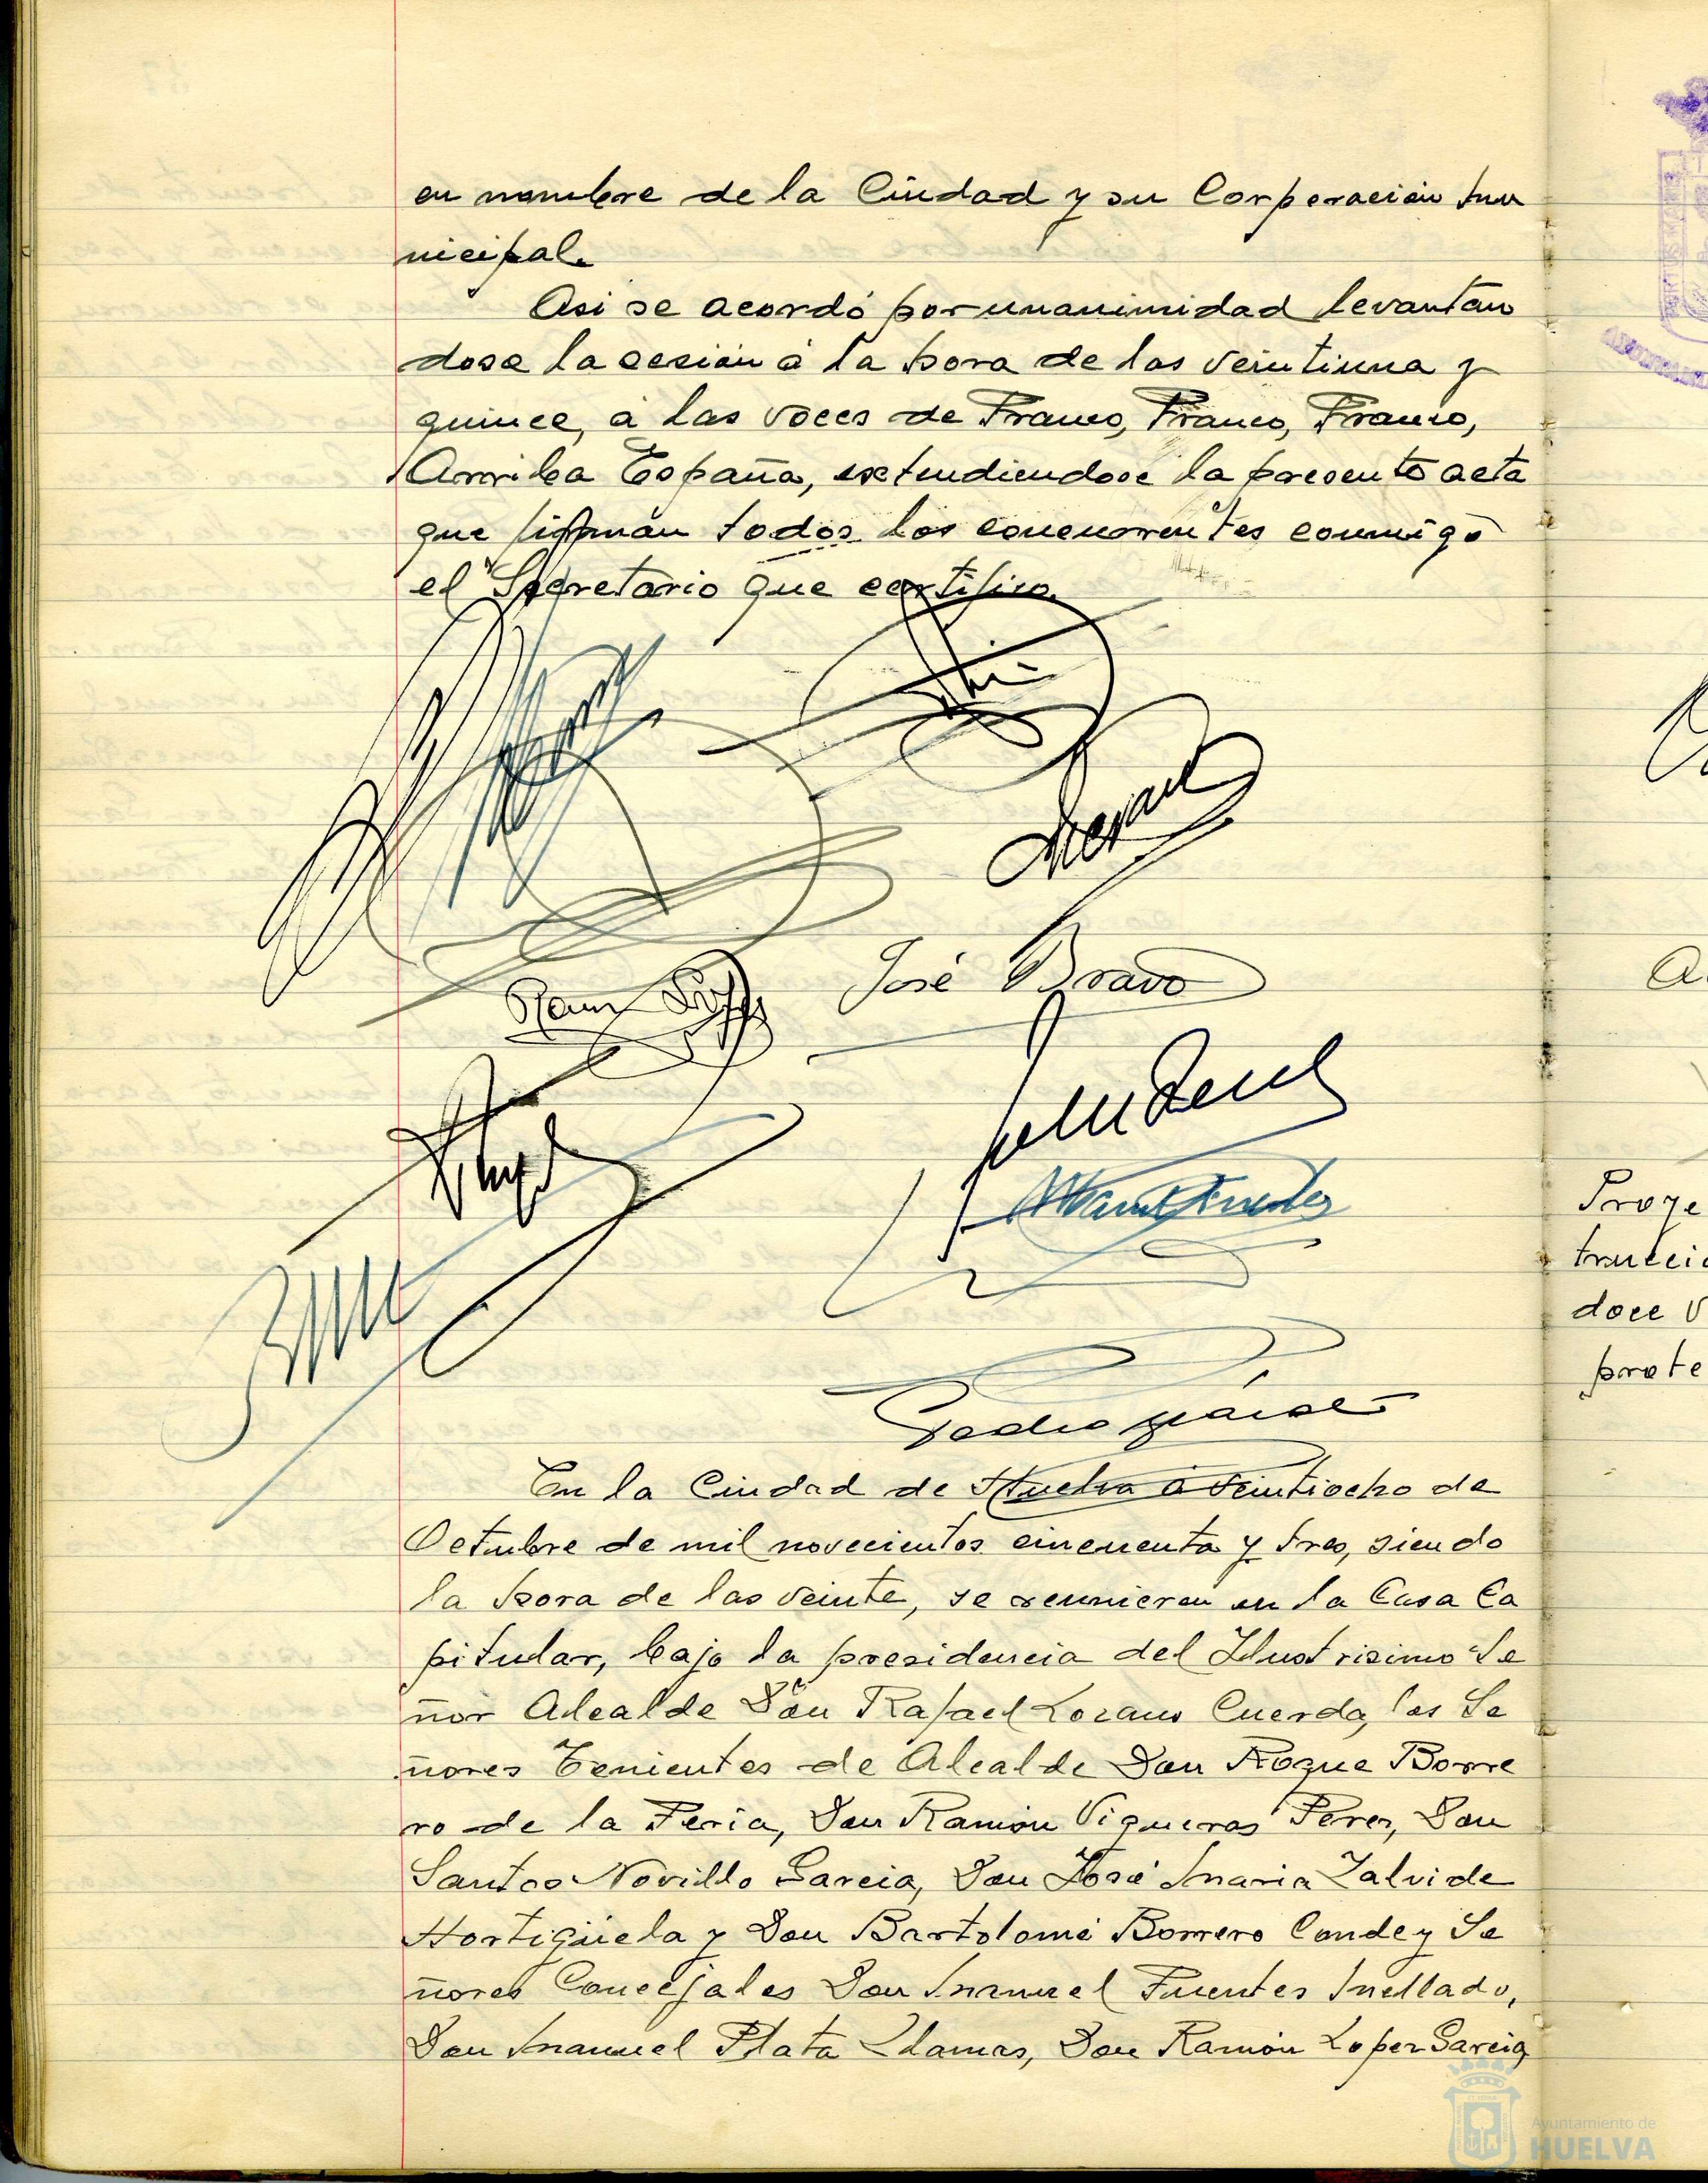 en nombre de la Ciudad y su Corporación Mu
nicipal.
Asi se acordó por unanimidad levantán
dose la sesión á la hora de las veintiuna y
quince, á las voces de Franco, Franco, Franco,
Arriba España, extendiendose la presente acta
que firman todos los concurrentes conmigo
el Secretario que certifico.
José Bravo
En la Ciudad de Huelva á veintiocho de
Octubre de mil novecientos cincuenta y tres, siendo
la hora de las veinte, se reunieron en la Casa Ca
pitular, bajo la presidencia del Ilustrisimo Se
ñor Alcalde Don Rafael Lozano Cuerda, los Se
ñores Tenientes de Alcalde Don Roque Borre
ro de la Feria, Don Ramón Vigueras Perez, Don
Santos Novillo Garcia, Don José Maria Zalvide
Hortigüela y Don Bartolomé Borrero Conde y Se
ñores Concejales Don Manuel Fuentes Mellado,
Don Manuel Plata Llamas, Don Ramón Lopez Garcia
Proye
trucció
doce v
prote
Ayuntamiento de
HUELVA